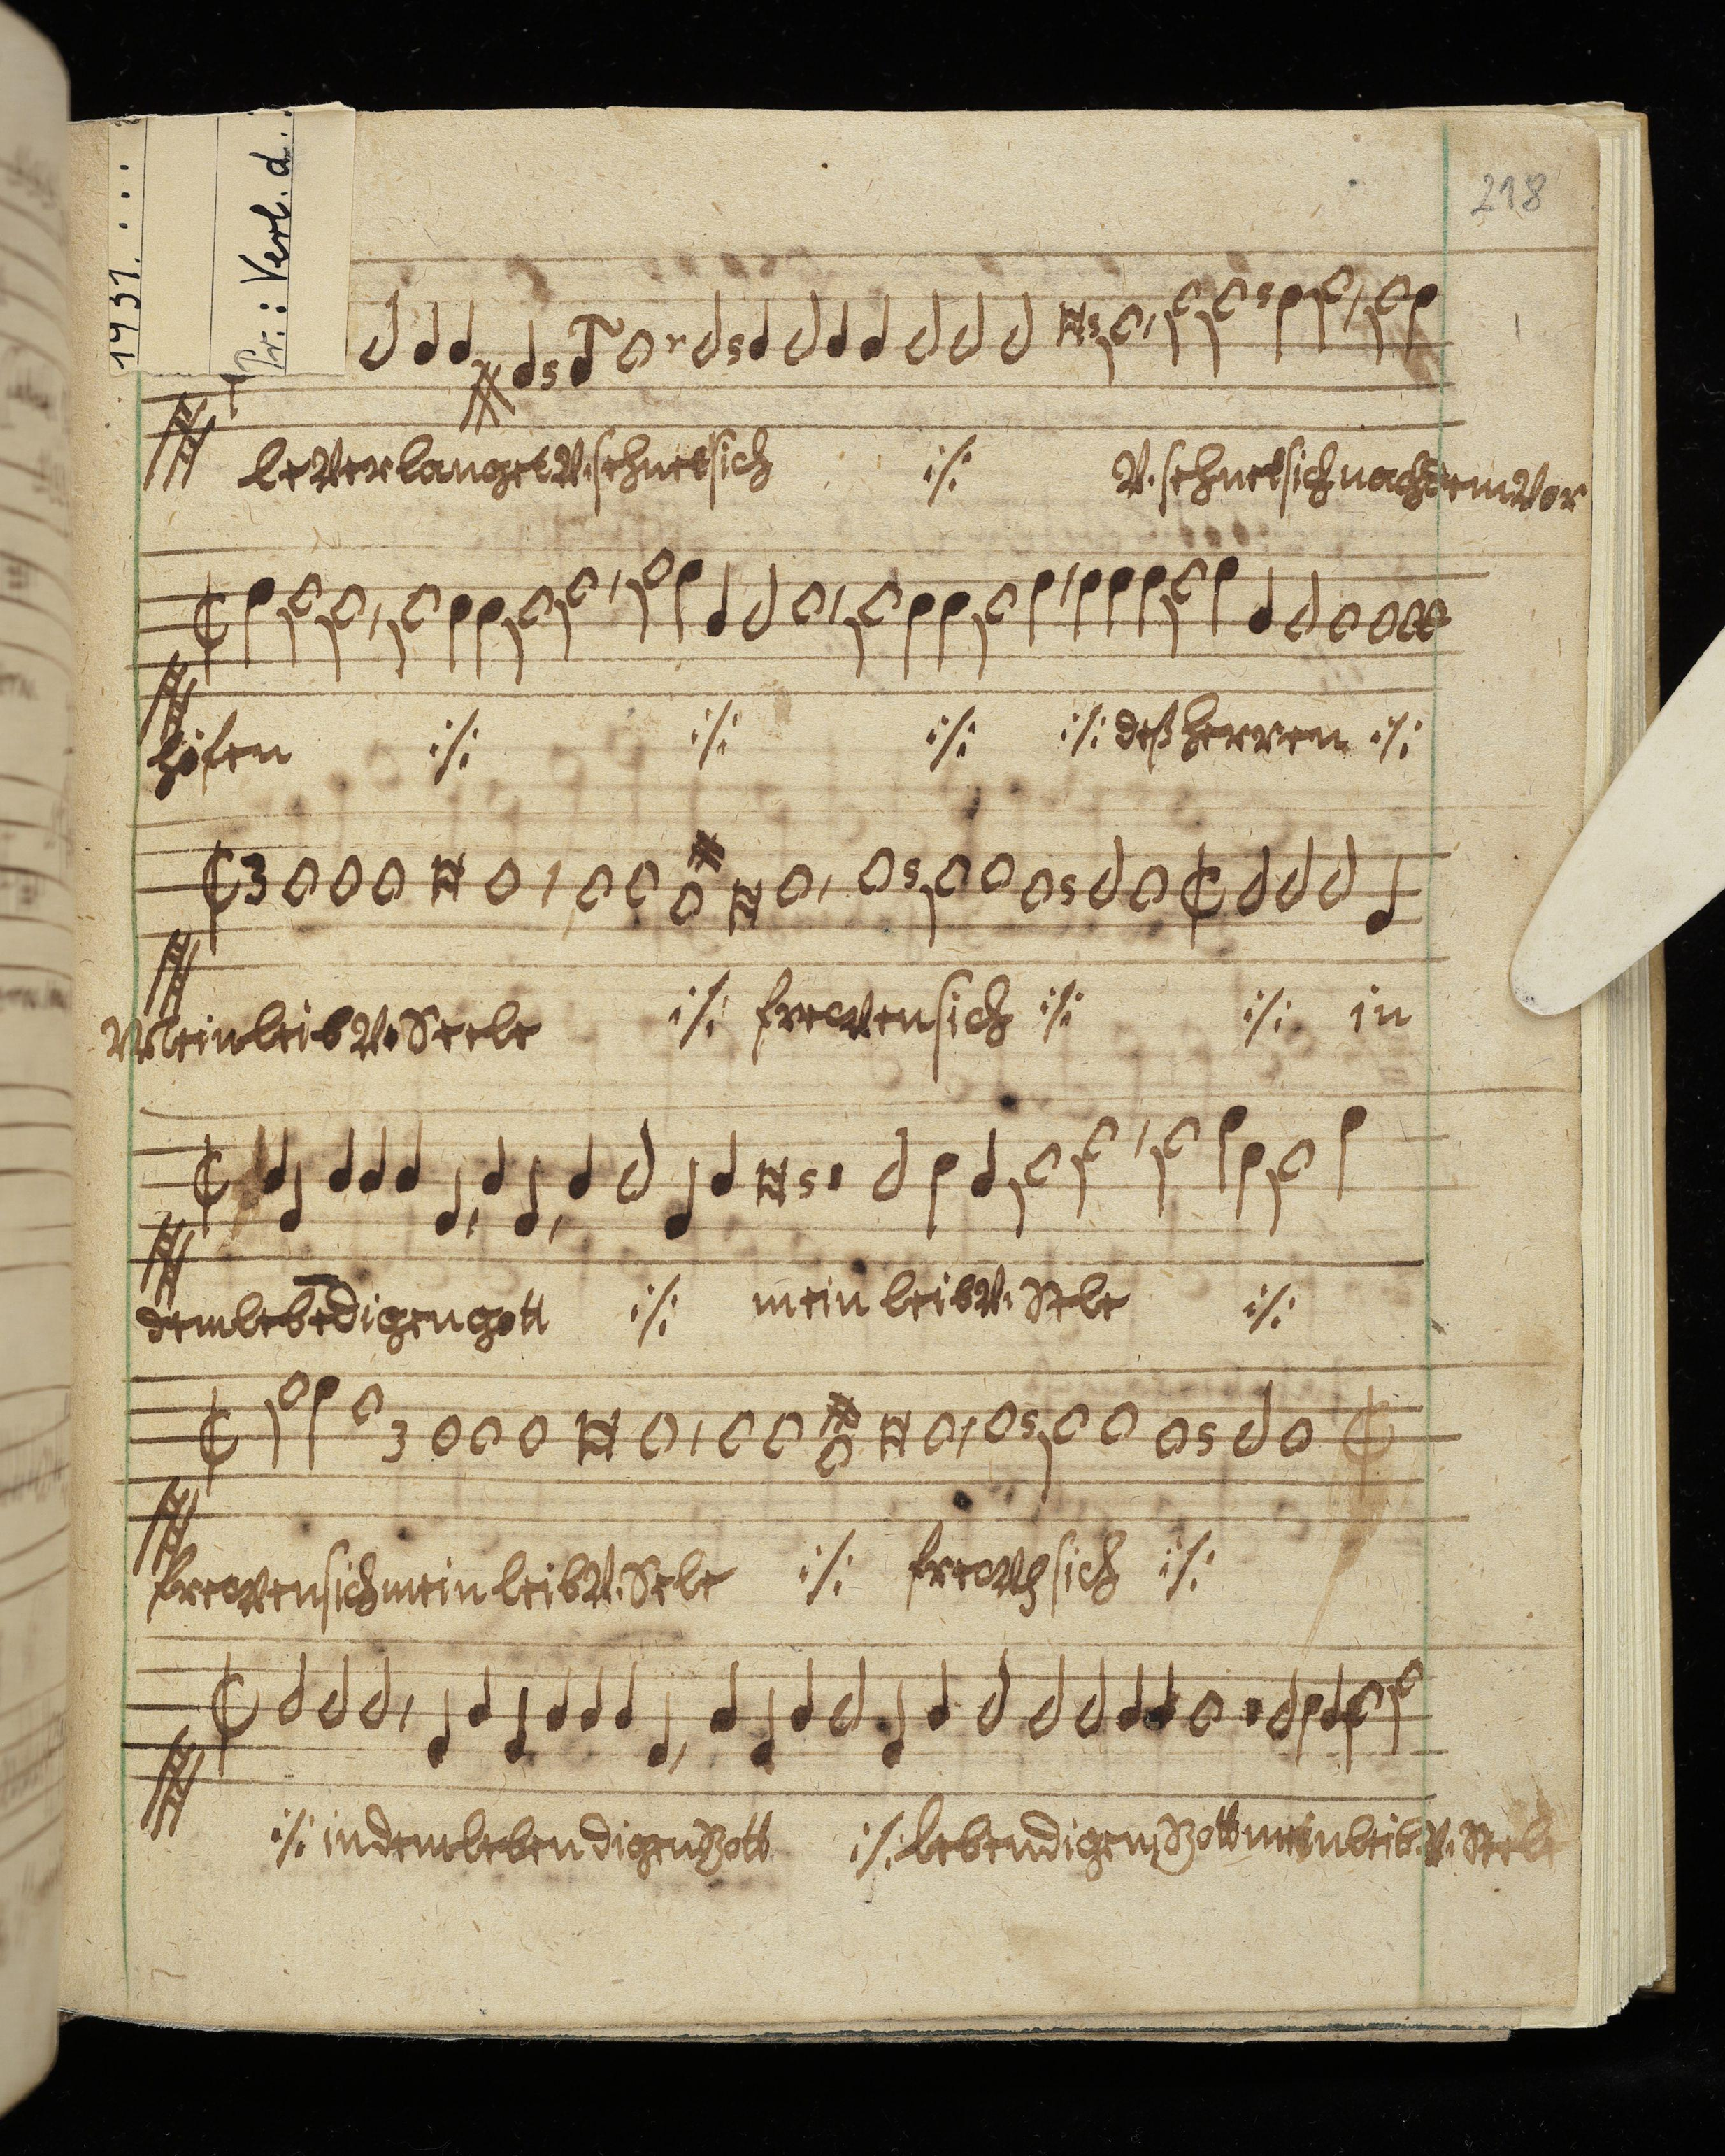 218
1931. . . .
Pr.: Verl. d. .
le verlanget v. sehnet sich :/: v. sehnet sich nach dem vor
höfen :/: :/: :/: :/: deß herren :/:
3
Mein leib v. Seele :/: frewen sich :/: :/: in
dem lebēdigen gott :/: mein leib v. Sele :/:
3
frewen sich mein leib v. Sele :/: sich :/:
:/: in dem lebendigen Gott :/: lebendigen Gott mein leib v. Seele